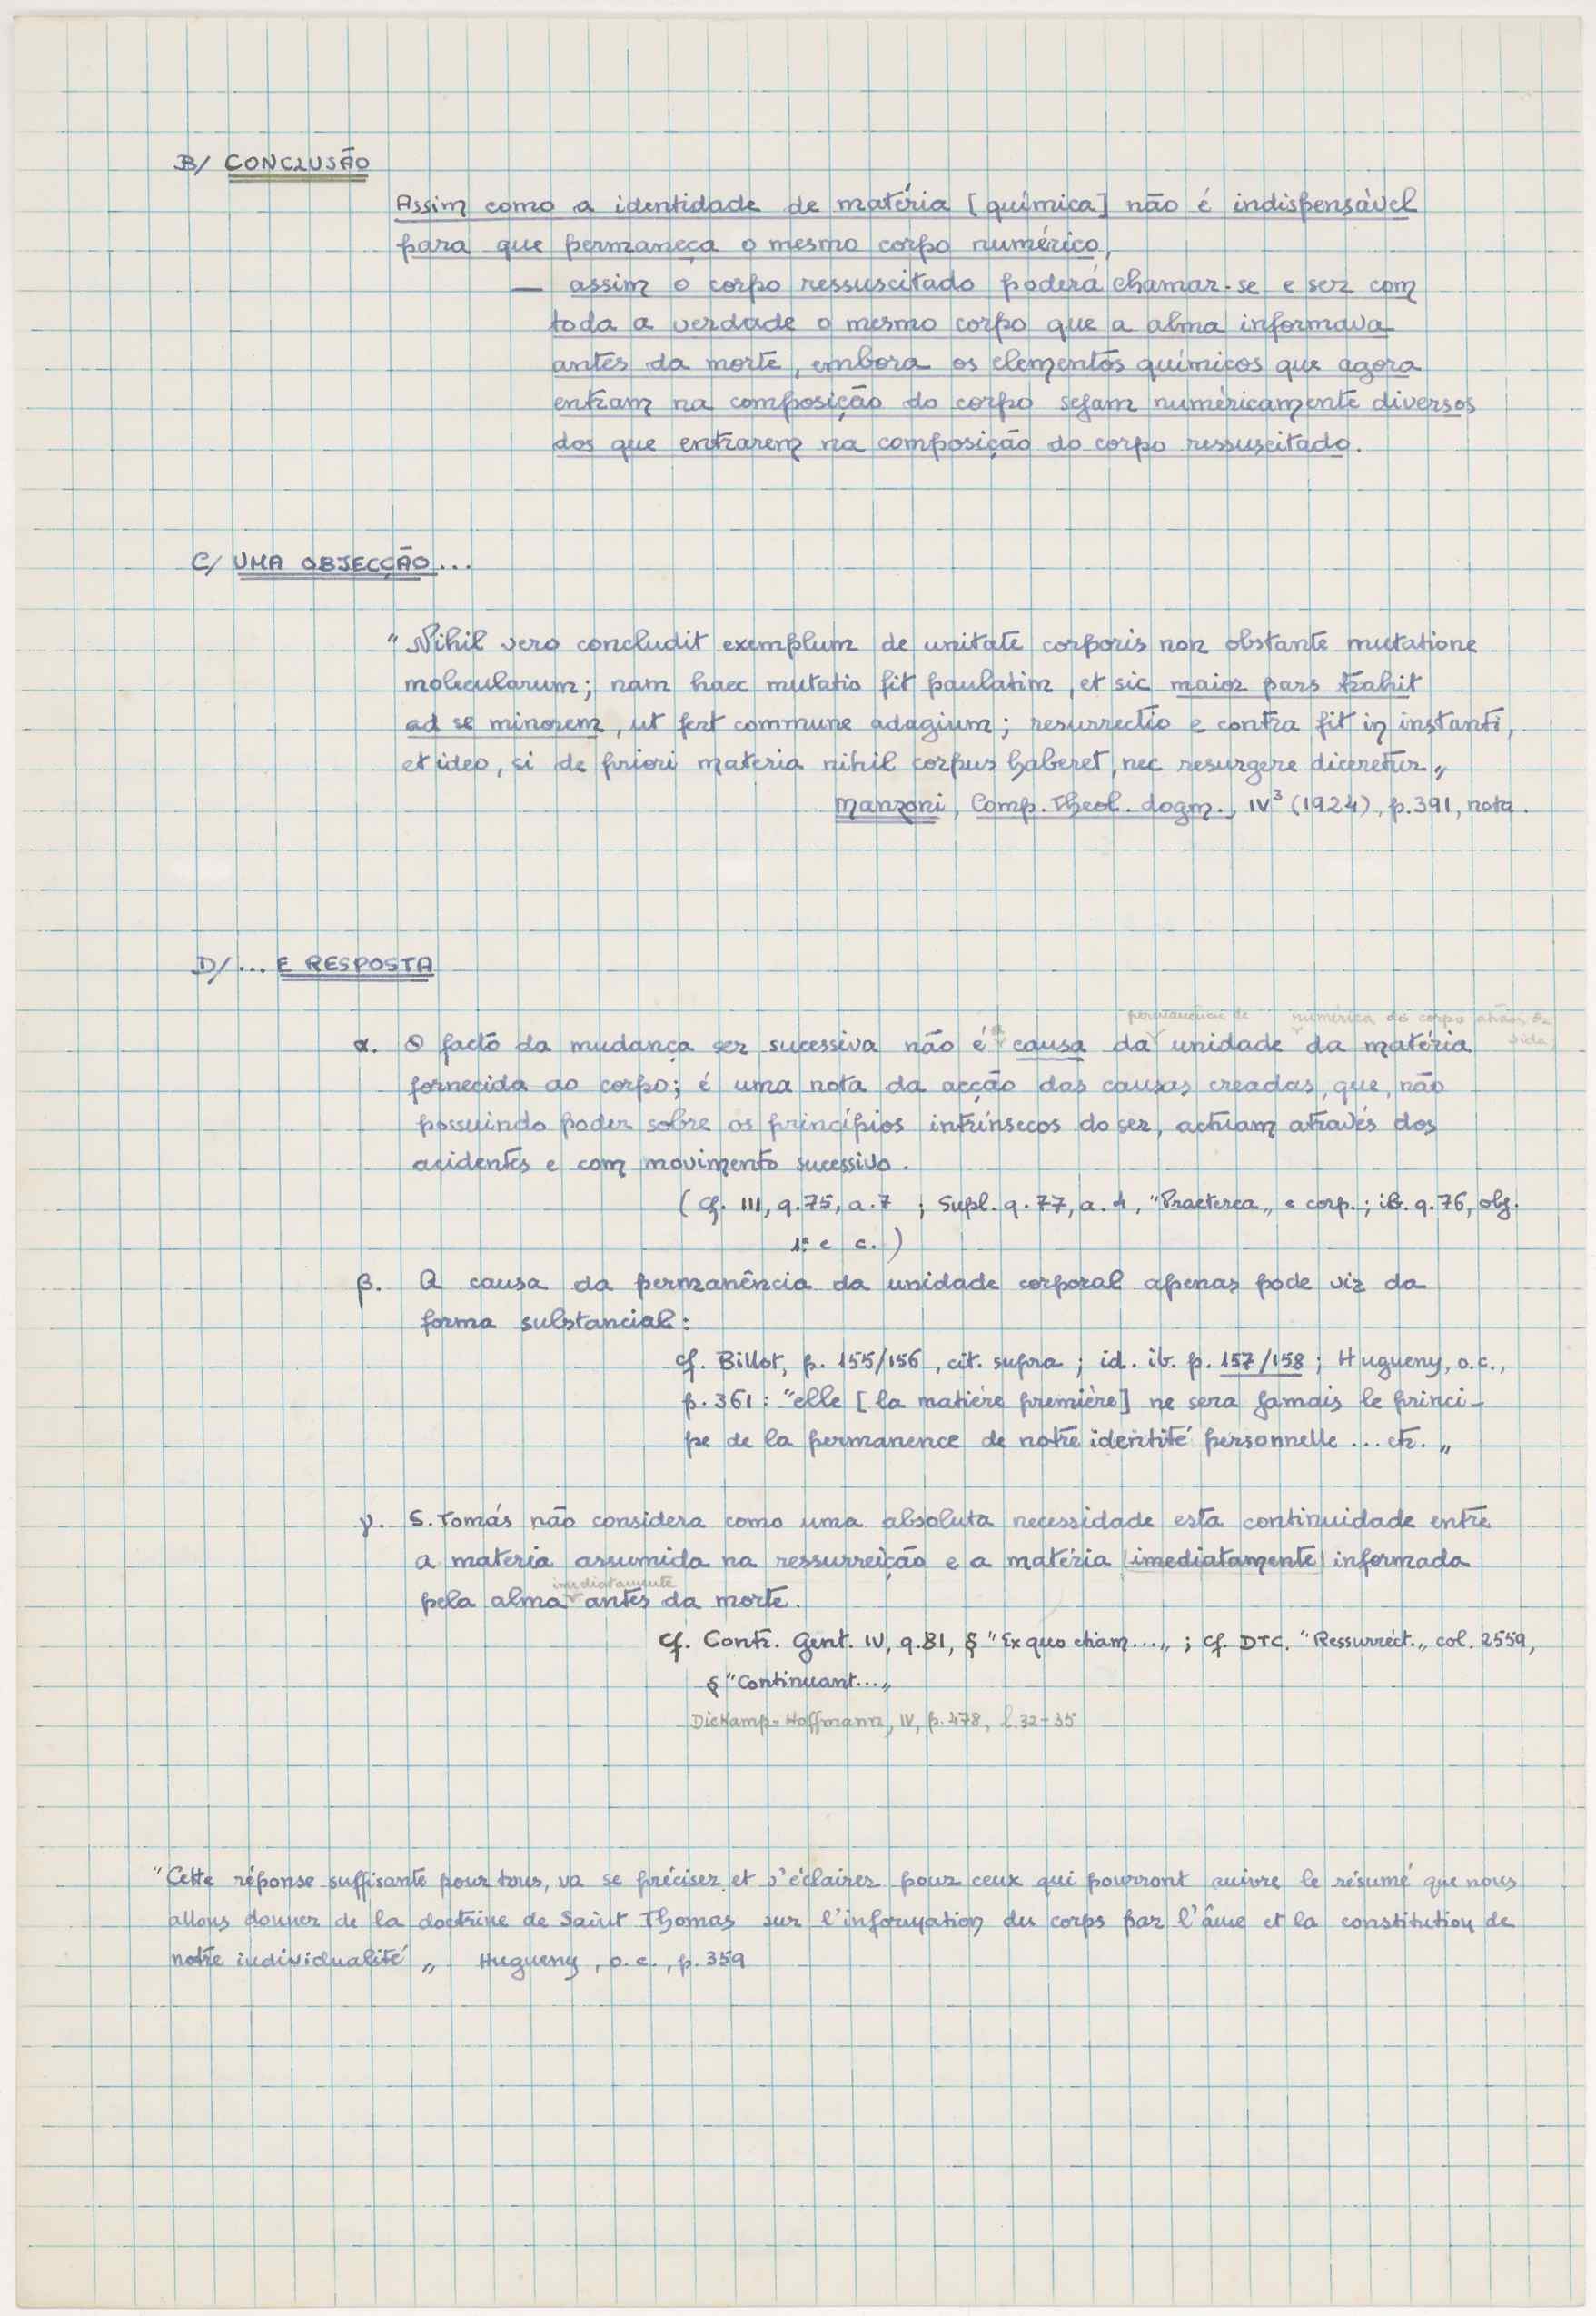 B/ CONCLUSÃO
Assim como a identidade de matéria [química] não é indispensável
para que permaneça o mesmo corpo numérico,
— assim o corpo ressuscitado poderá chamar-se e ser com
toda a verdade o mesmo corpo que a alma informava
antes da morte, embora os elementos químicos que agora
entram na composição do corpo sejam numèricamente diversos
dos que entrarem na composição do corpo ressuscitado.
C/ UMA OBJECÇÃO...
"Nihil vero concludit exemplum de unitate corporis non obstante mutatione
molecularum; nam haec mutatio fit paulatim, et sic maior pars trahit
ad se minorem, ut fert commune adagium; resurrectio e contra fit in instanti,
et ideo, si de priori materia nihil corpus haberet, nec resurgere diceretur„
Manzoni, Comp. Theol. dogm., IV³ (1924), p.391, nota.
D/ ... E RESPOSTA
permanência de numérica do corpo através da
vida
α. O facto da mudança ser sucessiva não é a causa da unidade da matéria
fornecida ao corpo; é uma nota da acção das causas creadas, que, não
possuindo poder sobre os princípios intrínsecos do ser, actuam através dos
acidentes e com movimento sucessivo.
(Cf. III, q.75, a.7 ; Supl. q.77, a.4, "Praeterea„ e corp.; ib. q.76, obj.
1ª e c.)
β. A causa da permanência da unidade corporal apenas pode vir da
forma substancial:
cf. Billot, p. 155/156, cit. supra ; id. ib. p. 157/158 ; Hugueny, o.c.,
p.361: "elle [la matière première] ne sera jamais le princi-
pe de la permanence de notre identité personnelle ... etc. „
γ. S. Tomás não considera como uma absoluta necessidade esta continuidade entre
a materia assumida na ressurreição e a matéria (imediatamente) informada
imediatamente
pela alma antes da morte.
Cf. Contr. Gent. IV, q.81, § "Ex quo etiam...„ ; Cf. DTC. "Ressurrect.„ col. 2559,
§ "Continuant...„
Diekamp-Hoffmann, IV, p.478, l.32-35
"Cette réponse suffisante pour tous, va se préciser et s'éclairer pour ceux qui pourront suivre le résumé que nous
allons donner de la doctrine de Saint Thomas sur l'information du corps par l'âme et la constitution de
notre individualité „ Hugueny, o.c., p.359